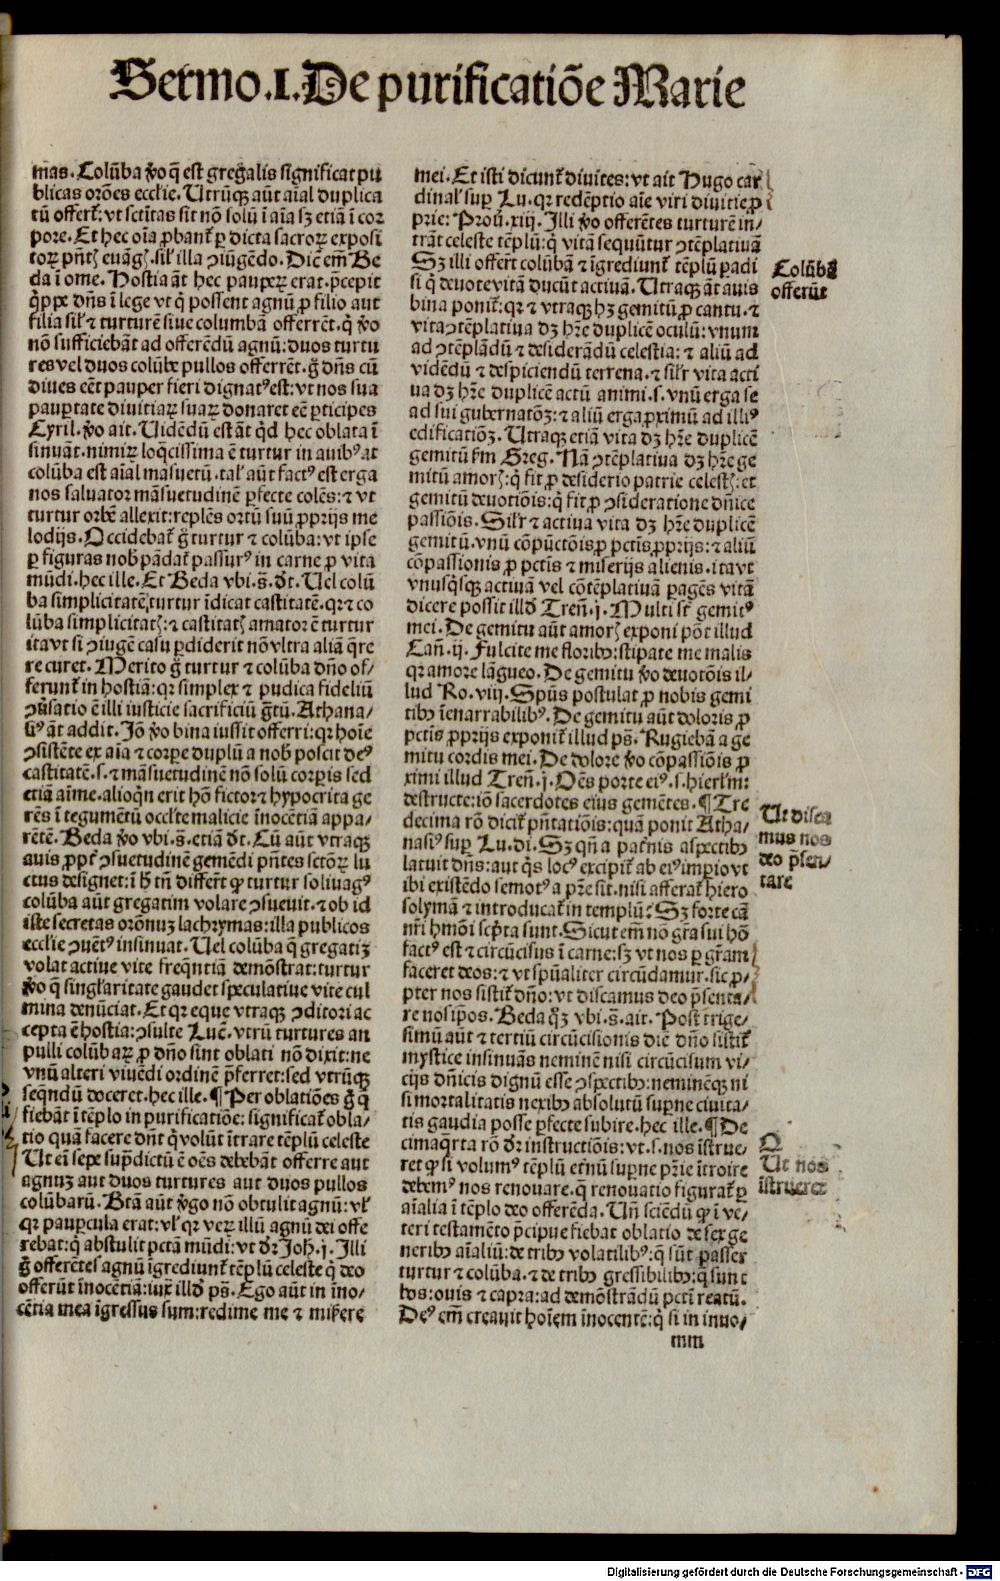 Sermo .I. De purificatiõe Marie
mas. Colũba ꝟo q̃ est greg̃alis significat pu
blicas orões ecclie. Utrũqꝫ aũt aĩal duplica
tũ offert᷑: vt sctĩtas sit nõ solũ ĩ aĩa sꝫ etiã ĩ cor
pore. Et hec oĩa ꝓbant᷑ ꝑ dicta sacroꝝ exposi
toꝝ pñtꝭ euãgꝭ. sil᷑ illa ↄiũgẽdo. Dic em̃ Be
da ĩ ome. Hostia ãt hec pauperꝝ erat. p̃cepit
q̃ppe dñs ĩ lege vt q̇ possent agnũ ꝓ filio aut
filia sil᷑ ⁊ turturẽ siue columbã offerrẽt. q̇ ꝟo
nõ sufficiebãt ad offerẽdũ agnũ: duos turtu
res vel duos colũbe pullos offerrẽt. g̃ dñs cũ
diues eẽt pauper fieri dignatꝰ est: vt nos sua
pauꝑtate diuitiaꝝ suaꝝ donaret eẽ ꝑticipes
Cyril. ꝟo ait. Uidẽdũ est ãt q̇d hec oblata ĩ
sinuãt. nimiꝝ loq̃cissima ẽ turtur in auibꝰ at
colũba est aĩal mãsuetũ. tal᷑ aũt factꝰ est erga
nos saluator mãsuetudinẽ ꝑfecte colẽs: ⁊ vt
turtur orbẽ allexit: replẽs ortũ suũ ꝓprijs me
lodijs. Occidebat᷑ g̃ turtur ⁊ colũba: vt ipse
ꝑ figuras nobꝭ pãdat᷑ passurꝰ in carne ꝓ vita
mũdi. hec ille. Et Beda vbi. s̃. dt̃. Uel colũ
ba simplicitatẽ, turtur ĩdicat castitatẽ. qꝛ ⁊ co
lũba simplicitatꝭ: ⁊ castitatꝭ amator ẽ turtur
ita vt si ↄiugẽ casu ꝑdiderit nõ vltra aliã q̃re
re curet. Merito g̃ turtur ⁊ colũba dño of/
ferunt᷑ in hostiã: qꝛ simplex ⁊ pudica fideliũ
ↄũsatio ẽ illi iusticie sacrificiũ g̃tũ. Athana/
siꝰ ãt addit. Jõ ꝟo bina iussit offerri: qꝛ hoĩe
ↄsistẽte ex aĩa ⁊ corpe duplũ a nobꝭ poscit deꝰ
castitatẽ. s. ⁊ mãsuetudinẽ nõ solũ corꝑis sed
etiã aĩme. alioq̇n erit hõ fictor ⁊ hypocrita ge
rẽs ĩ tegumẽtũ occlte malicie inocẽtiã appa/
rẽtẽ. Beda ꝟo vbi. s̃. etiã dt̃. Cũ aũt vtraqꝫ
auis ꝓpt᷑ ↄsuetudinẽ gemẽdi pñtes sctõꝝ lu
ctus designet: ĩ h̃ tñ differt᷑ ꝙ turtur soliuagꝰ
colũba aũt gregatim volare ↄsueuit. ⁊ ob id
iste secretas orõnuꝫ lachrymas: illa publicos
ecclie ↄuẽtꝰ insinuat. Uel colũba q̃ gregatiꝫ
volat actiue vite freq̃ntiã demõstrat: turtur
ꝟo q̃ singl᷑aritate gaudet speculatiue vite cul
mina denũciat. Et qꝛ eque vtraqꝫ ↄditori ac
cepta ẽ hostia: ↄsulte Luc̃. vtrũ turtures an
pulli colũbaꝝ ꝓ dño sint oblati nõ dixit: ne
vnũ alteri viuẽdi ordinẽ p̃ferret: sed vtrũqꝫ
seq̃ndũ doceret. hec ille. ¶ Per oblatiões g̃ q̃
fiebãt ĩ tẽplo in purificatiõe: significat᷑ obla/
tio quã facere dñt q̇ volũt ĩtrare tẽplũ celeste
Ut em̃ sepe sup̃dictũ ẽ oẽs debebãt offerre aut
agnuꝫ aut duos turtures aut duos pullos
colũbarũ. Btã aũt v̾go nõ obtulit agnũ: vl᷑
qꝛ pauꝑcula erat: vl᷑ qꝛ veꝝ illũ agnũ dei offe
rebat: q̇ abstulit pctã mũdi: vt dr̃ Joh̃. j. Illi
g̃ offerẽtes agnũ ĩgrediunt᷑ tẽplũ celeste q̇ deo
offerũt ĩnocẽtiã: iuxͭ illd̾ ps̃. Ego aũt in ĩno/
cẽtia mea ĩgressus sum: redime me ⁊ miẞere
mei. Et isti dicunt᷑ diuites: vt ait Hugo car
dinal᷑ suꝑ Lu. qꝛ redẽptio aĩe viri diuitie ꝓ
prie: Prou̾. xiij. Illi ꝟo offerẽtes turturẽ in/
trãt celeste tẽplũ: q̇ vitã sequũtur ↄtẽplatiuã
Sꝫ illi offerũt colũbã ⁊ ĩgrediunt᷑ tẽplũ padi
si q̇ deuote vitã ducũt actiuã. Utraqꝫ ãt auis
bina ponit᷑: qꝛ ⁊ vtraqꝫ hꝫ gemitũ ꝓ cantu. ⁊
vita ↄtẽplatiua dꝫ hr̃e duplicẽ oculũ: vnum
ad ↄtẽplãdũ ⁊ desiderãdũ celestia: ⁊ aliũ ad
vidẽdũ ⁊ despiciendũ terrena. ⁊ sil᷑r vita acti
ua dꝫ hr̃e duplicẽ actũ animi. s. vnũ erga se
ad sui gubernatõꝫ: ⁊ aliũ erga ꝓximũ ad illiꝰ
edificatiõꝫ. Utraqꝫ etiã vita dꝫ hr̃e duplicẽ
gemitũ ẞm Greg. Nã ↄtẽplatiua dꝫ hr̃e ge
mitũ amorꝭ: q̇ fit ꝓ desiderio patrie celestꝭ: et
gemitũ deuotiõis: q̇ fit ꝓ ↄsideratione dñice
passiõis. Sil᷑r ⁊ actiua vita dꝫ hr̃e duplicẽ
gemitũ. vnũ cõpũctõis ꝓ pctĩs ꝓprijs: ⁊ aliũ
cõpassionis ꝓ pctĩs ⁊ miserijs alienis. ita vt
vnusq̇sqꝫ actiuã vel cõtẽplatiuã pagẽs vitã
dicere possit illd̾ Tren̾. j. Multi st̃ gemitꝰ
mei. De gemitu aũt amorꝭ exponi põt illud
Can̾. ij. Fulcite me floribꝰ: stipate me malis
qꝛ amore lãgueo. De gemitu ꝟo deuotõis il/
lud Ro. viij. Spũs postulat ꝓ nobis gemi
tibꝰ ĩenarrabilibꝰ. De gemitu aũt doloris ꝓ
pctĩs ꝓprijs exponit᷑ illud ps̃. Rugiebã a ge
mitu cordis mei. De dolore ꝟo cõpassiõis ꝓ
ximi illud Tren̾. j. Oẽs porte eiꝰ. s. hierl᷑m:
destructe: iõ sacerdotes eius gemẽtes. ¶ Tre
decima rõ dicit᷑ pñtatiõis: quã ponit Atha/
nasiꝰ suꝑ Lu. di. Sꝫ qñ a pat̾nis aspectibꝰ
latuit dñs: aut q̇s locꝰ excipit᷑ ab eiꝰ imꝑio vt
ibi existẽdo semotꝰ a pr̃e sit. nisi afferat᷑ hiero
solymã ⁊ introducat᷑ in templũ? Sꝫ forte cã
nr̃i hmõi scp̃ta sunt. Sicut em̃ nõ gr̃a sui hõ
factꝰ est ⁊ circũcisus ĩ carne: sꝫ vt nos ꝑ gr̃am
faceret deos: ⁊ vt spũaliter circũdamur. sic ꝓ/
pter nos sistit᷑ dño: vt discamus deo p̃senta/
re nosip̃os. Beda q̃ꝫ vbi. s̃. ait. Post trige/
simũ aũt ⁊ tertiũ circũcisionis diẽ dño sistit᷑
mystice insinuãs neminẽ nisi circũcisum vi/
cijs dñicis dignũ esse ↄspectibꝰ: neminẽqꝫ ni
si mortalitatis nexibꝰ absolutũ suꝑne ciuita/
tis gaudia posse ꝑfecte subire. hec ille. ¶ De
cimaq̃rta rõ dr̃ instructiõis: vt. s. nos ĩstrue/
ret ꝙ si volumꝰ tẽplũ et̾nũ suꝑne pr̃ie ĩtroire
debemꝰ nos renouare. q̃ renouatio figurat᷑ ꝑ
aĩalia ĩ tẽplo deo offerẽda. Uñ sciẽdũ ꝙ ĩ ve/
teri testamẽto p̃cipue fiebat oblatio de sex ge
neribꝰ aĩaliũ: de tribꝰ volatilibꝰ: q̃ sũt passer
turtur ⁊ colũba. ⁊ de tribꝰ gressibilibꝰ: q̃ sunt
bos: ouis ⁊ capra: ad demõstrãdũ pctĩ reatũ.
Deꝰ em̃ creauit hoĩem ĩnocentẽ: q̇ si in inno/
mm
Colũbã
offerũt
Ut disca
mus nos
deo p̃sen/
tare
Ut nos
ĩstrueret
Digitalisierung gefördert durch die Deutsche Forschungsgemeinschaft - DFG